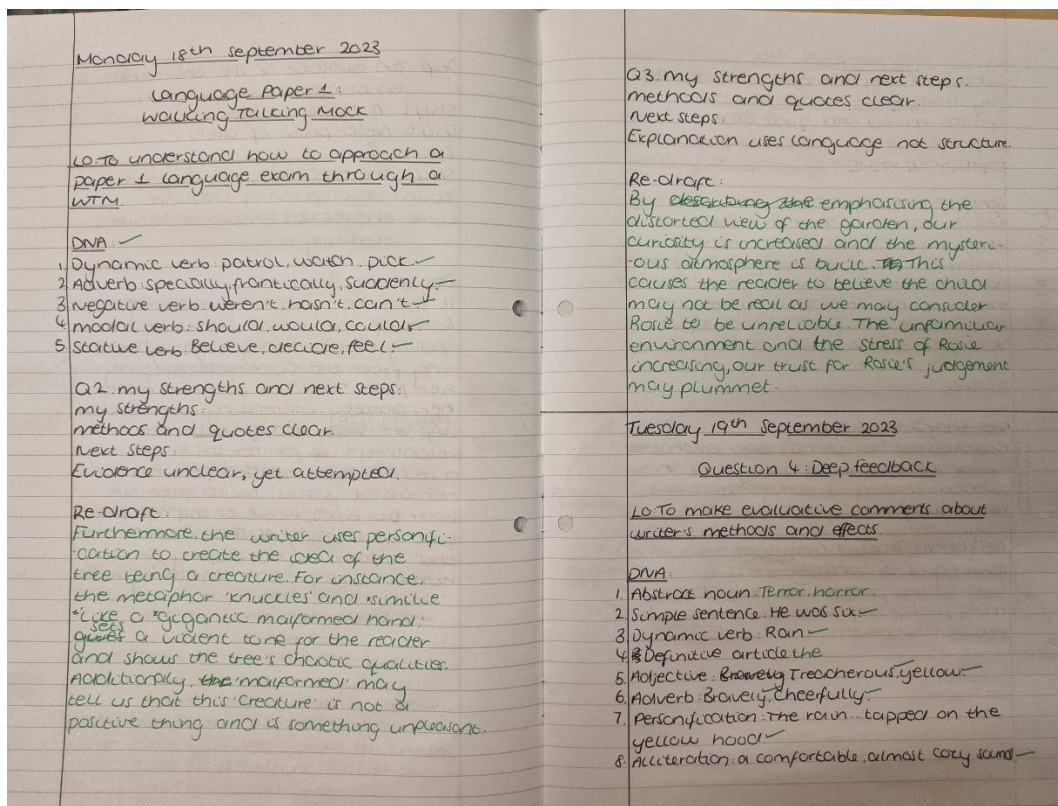 Monday 18th September 2023
Language Paper 1:
Walking Talking Mock
LO: To understand how to approach a
paper 1 language exam through a
WTM.
DNA:
1. Dynamic verb: patrol, watch, pick.
2. Adverb: specially, frantically, suddenly.
3. Negative verb: weren't, hasn't, can't
4. modal verb: should, would, could
5. Stative verb: Believe, decide, feel
Q2. my strengths and next steps:
my strengths:
methods and quotes clear.
Next steps
Evidence unclear, yet attempted.
Re-draft:
Furthermore, the writer uses personifi-
-cation to create the idea of the
tree being a creature. For instance,
the metaphor 'knuckles' and simile
'Like a gigantic malformed hand,'
gives sets a violent tone for the reader
and shows the tree's chaotic qualities.
Additionally, the 'malformed' may
tell us that this 'creature' is not a
positive thing and is something unpleasant.
Q3. my strengths and next steps.
methods and quotes clear.
Next steps.
Explanation uses language not structure
Re-draft:
By describing the emphasising the
distorted view of the garden, our
curiosity is increased and the mysteri-
-ous atmosphere is built. This
causes the reader to believe the child
may not be real as we may consider
Rosie to be unreliable. The unfamiliar
environment and the stress of Rosie
increasing, our trust for Rosie's judgement
may plummet.
Tuesday 19th September 2023
Question 4: Deep feedback
LO: To make evaluative comments about
writer's methods and effects.
DNA:
1. Abstract noun: Terror, horror.
2. Simple sentence: He was six
3. Dynamic verb: Ran
4. Definitive article: the
5. Adjective: Bravely Treacherous, yellow
6. Adverb: Bravely, Cheerfully
7. Personification: The rain tapped on the
yellow hood
8. Alliteration: a comfortable, almost cozy sound